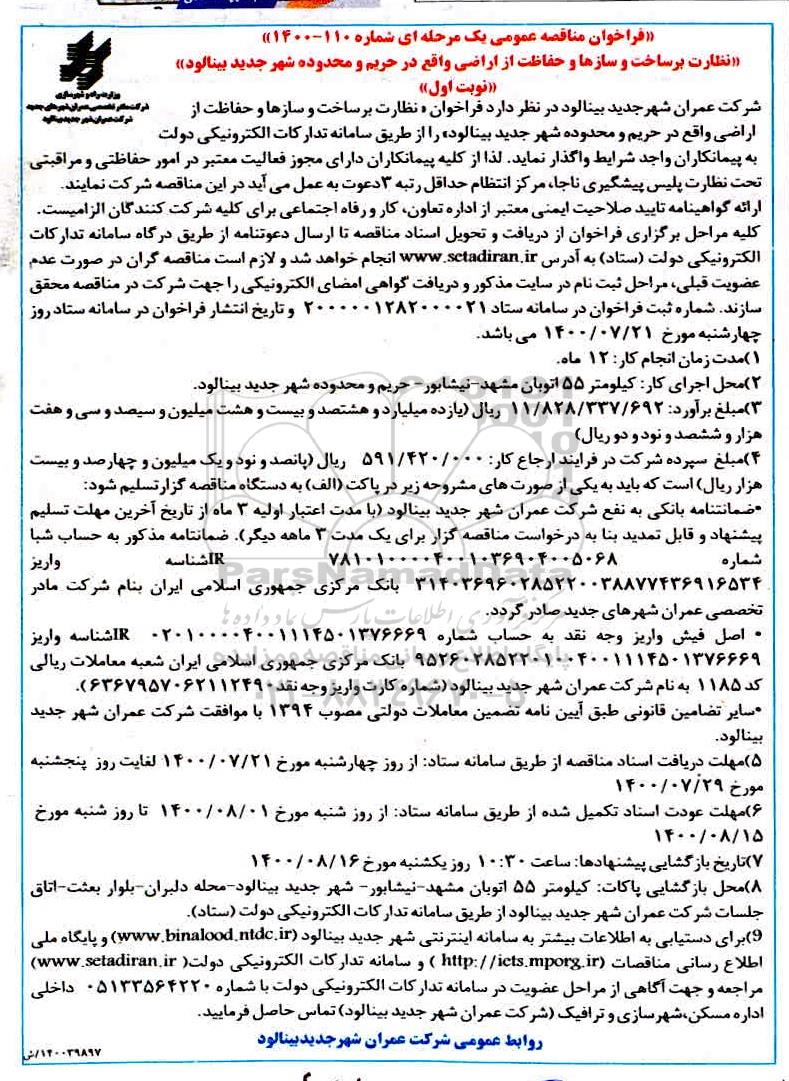 «فراخوان مناقصه عمومی یک مرحله ای شماره ۱۱۰-۱۴۰۰»
«نظارت برساخت و سازها و حفاظت از اراضی واقع در حریم و محدوده شهر جدید بینالود»
«نوبت اول»
وزارت راه و شهرسازی
شرکت مادر تخصصی عمران شهرهای جدید
شرکت عمران شهر جدید بینالود
شرکت عمران شهرجدید بینالود در نظر دارد فراخوان « نظارت برساخت و سازها و حفاظت از
اراضی واقع در حریم و محدوده شهر جدید بینالود» را از طریق سامانه تدارکات الکترونیکی دولت
به پیمانکاران واجد شرایط واگذار نماید. لذا از کلیه پیمانکاران دارای مجوز فعالیت معتبر در امور حفاظتی و مراقبتی
تحت نظارت پلیس پیشگیری ناجا، مرکز انتظام حداقل رتبه ۳دعوت به عمل می آید در این مناقصه شرکت نمایند.
ارائه گواهینامه تایید صلاحیت ایمنی معتبر از اداره تعاون، کار و رفاه اجتماعی برای کلیه شرکت کنندگان الزامیست.
کلیه مراحل برگزاری فراخوان از دریافت و تحویل اسناد مناقصه تا ارسال دعوتنامه از طریق درگاه سامانه تدارکات
الکترونیکی دولت (ستاد) به آدرس www.setadiran.ir انجام خواهد شد و لازم است مناقصه گران در صورت عدم
عضویت قبلی، مراحل ثبت نام در سایت مذکور و دریافت گواهی امضای الکترونیکی را جهت شرکت در مناقصه محقق
سازند. شماره ثبت فراخوان در سامانه ستاد ۲۰۰۰۰۰۱۲۸۲۰۰۰۰۲۱ و تاریخ انتشار فراخوان در سامانه ستاد روز
چهارشنبه مورخ ۱۴۰۰/۰۷/۲۱ می باشد.
۱)مدت زمان انجام کار: ۱۲ ماه.
۲)محل اجرای کار: کیلومتر ۵۵ اتوبان مشهد-نیشابور- حریم و محدوده شهر جدید بینالود.
۳)مبلغ برآورد: ۱۱/۸۲۸/۳۳۷/۶۹۲ ریال (یازده میلیارد و هشتصد و بیست و هشت میلیون و سیصد و سی و هفت
هزار و ششصد و نود و دو ریال)
۴)مبلغ سپرده شرکت در فرایند ارجاع کار: ۵۹۱/۴۲۰/۰۰۰ ریال (پانصد و نود و یک میلیون و چهارصد و بیست
هزار ریال) است که باید به یکی از صورت های مشروحه زیر در پاکت (الف) به دستگاه مناقصه گزار تسلیم شود:
•ضمانتنامه بانکی به نفع شرکت عمران شهر جدید بینالود (با مدت اعتبار اولیه ۳ ماه از تاریخ آخرین مهلت تسلیم
پیشنهاد و قابل تمدید بنا به درخواست مناقصه گزار برای یک مدت ۳ ماهه دیگر). ضمانتامه مذکور به حساب شبا
شماره ۷۸۱۰۱۰۰۰۰۴۰۰۱۰۳۶۹۰۴۰۰۵۰۶۸ IRشناسه واریز
۳۱۴۰۳۶۹۶۰۲۸۵۲۲۰۰۳۸۸۷۷۴۳۶۹۱۶۵۳۴ بانک مرکزی جمهوری اسلامی ایران بنام شرکت مادر
تخصصی عمران شهرهای جدید صادر گردد.
• اصل فیش واریز وجه نقد به حساب شماره ۰۲۰۱۰۰۰۰۴۰۰۱۱۱۴۵۰۱۳۷۶۶۶۹ IRشناسه واریز
۹۵۲۶۰۲۸۵۲۲۰۱۰۰۴۰۰۱۱۱۴۵۰۱۳۷۶۶۶۹ بانک مرکزی جمهوری اسلامی ایران شعبه معاملات ریالی
کد ۱۱۸۵ به نام شرکت عمران شهر جدید بینالود (شماره کارت واریز وجه نقد۶۳۶۷۹۵۷۰۶۲۱۱۲۴۹۰).
•سایر تضامین قانونی طبق آیین نامه تضمین معاملات دولتی مصوب ۱۳۹۴ با موافقت شرکت عمران شهر جدید
بینالود.
۵)مهلت دریافت اسناد مناقصه از طریق سامانه ستاد: از روز چهارشنبه مورخ ۱۴۰۰/۰۷/۲۱ لغایت روز پنجشنبه
مورخ ۱۴۰۰/۰۷/۲۹
۶)مهلت عودت اسناد تکمیل شده از طریق سامانه ستاد: از روز شنبه مورخ ۱۴۰۰/۰۸/۰۱ تا روز شنبه مورخ
۱۴۰۰/۰۸/۱۵
۷)تاریخ بازگشایی پیشنهادها: ساعت ۱۰:۳۰ روز یکشنبه مورخ ۱۴۰۰/۰۸/۱۶
۸)محل بازگشایی پاکات: کیلومتر ۵۵ اتوبان مشهد-نیشابور- شهر جدید بینالود-محله دلبران-بلوار بعثت-اتاق
جلسات شرکت عمران شهر جدید بینالود از طریق سامانه تدارکات الکترونیکی دولت (ستاد).
۹)برای دستیابی به اطلاعات بیشتر به سامانه اینترنتی شهر جدید بینالود (www.binalood.ntdc.ir) و پایگاه ملی
اطلاع رسانی مناقصات (http://iets.mporg.ir ) و سامانه تدارکات الکترونیکی دولت( www.setadiran.ir)
مراجعه و جهت آگاهی از مراحل عضویت در سامانه تدارکات الکترونیکی دولت با شماره ۰۵۱۳۳۵۶۴۲۲۰ داخلی
اداره مسکن،شهرسازی و ترافیک (شرکت عمران شهر جدید بینالود) تماس حاصل فرمایید.
روابط عمومی شرکت عمران شهرجدیدبینالود
۱۴۰۰۳۹۸۹۷/ش
ParsNamadData